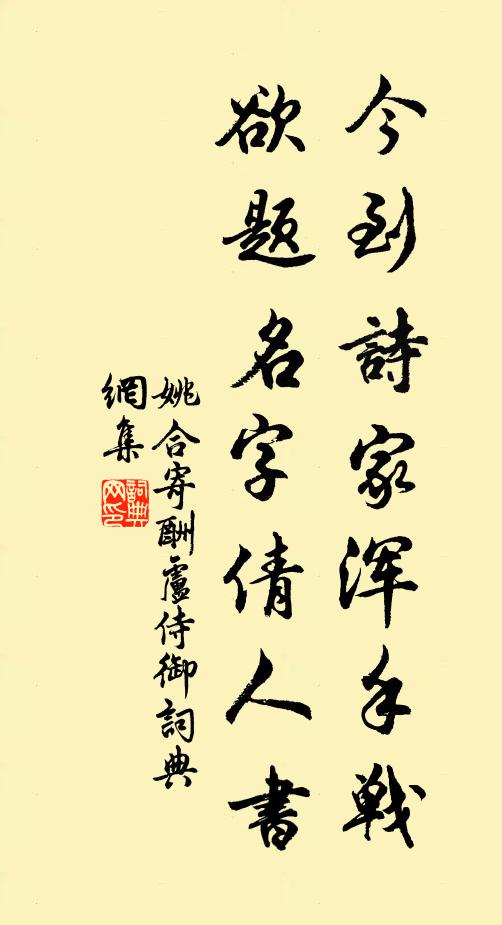 今到詩家浑手戰
欲題名字倩人書
姚合寄酬盧侍御詞典
網集
詞典
网印